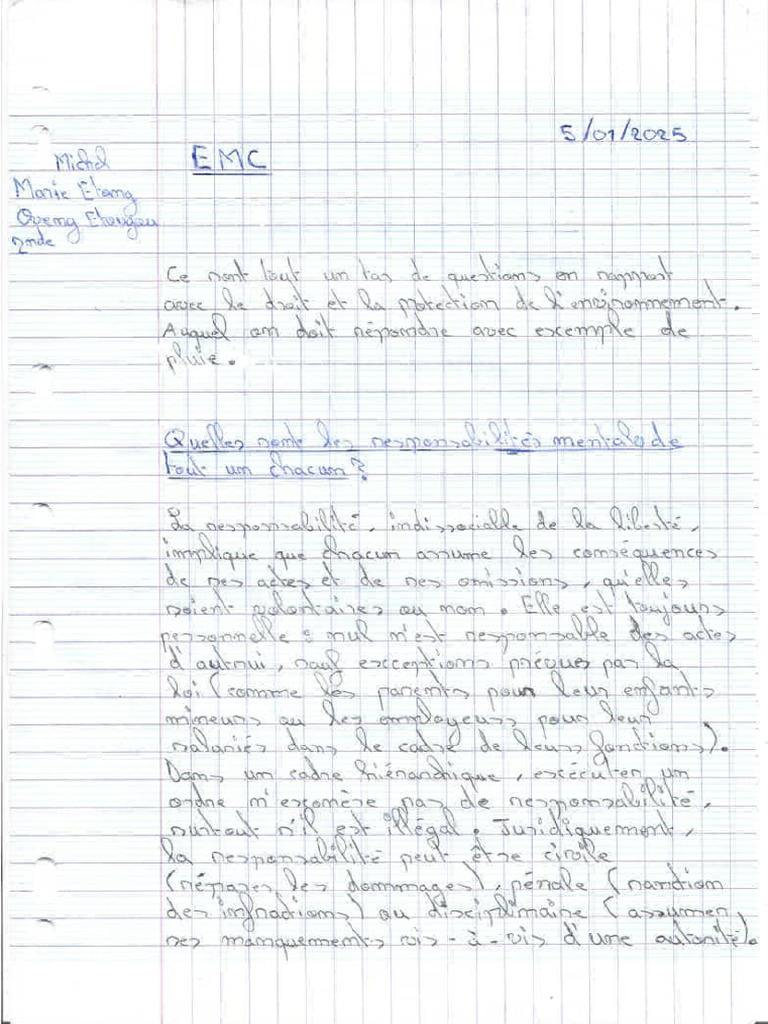 5/01/2025
EMC
Michel
Marie Etang
Oyemg Etougou
2nde
Ce sont tout un tas de questions en rapport
avec le droit et la protection de l'environnement.
Auquel on doit répondre avec excemple de
pluie.
Quelles sont les responsabilités mentales de
tout un chacun ?
La responsabilité, indissociable de la liberté,
implique que chacun assume les conséquences
de ses actes et de ses omissions, qu'elles
soient volontaires ou non. Elle est toujours
personnelle : nul n'est responsable des actes
d'autrui, sauf excceptions prévues par la
loi (comme les parents pour leur enfants
mineurs ou les employeurs pour leur
salariés dans le cadre de leurs fonctions).
Dans un cadre hiérarchique, excécuter un
ordre n'exonère pas de responsabilité,
surtout s'il est illégal. Juridiquement,
la responsabilité peut être civile
(réparer les dommages), pénale (sanction
des infractions) ou disciplinaire (assumer
ses manquements vis-à-vis d'une autorité).